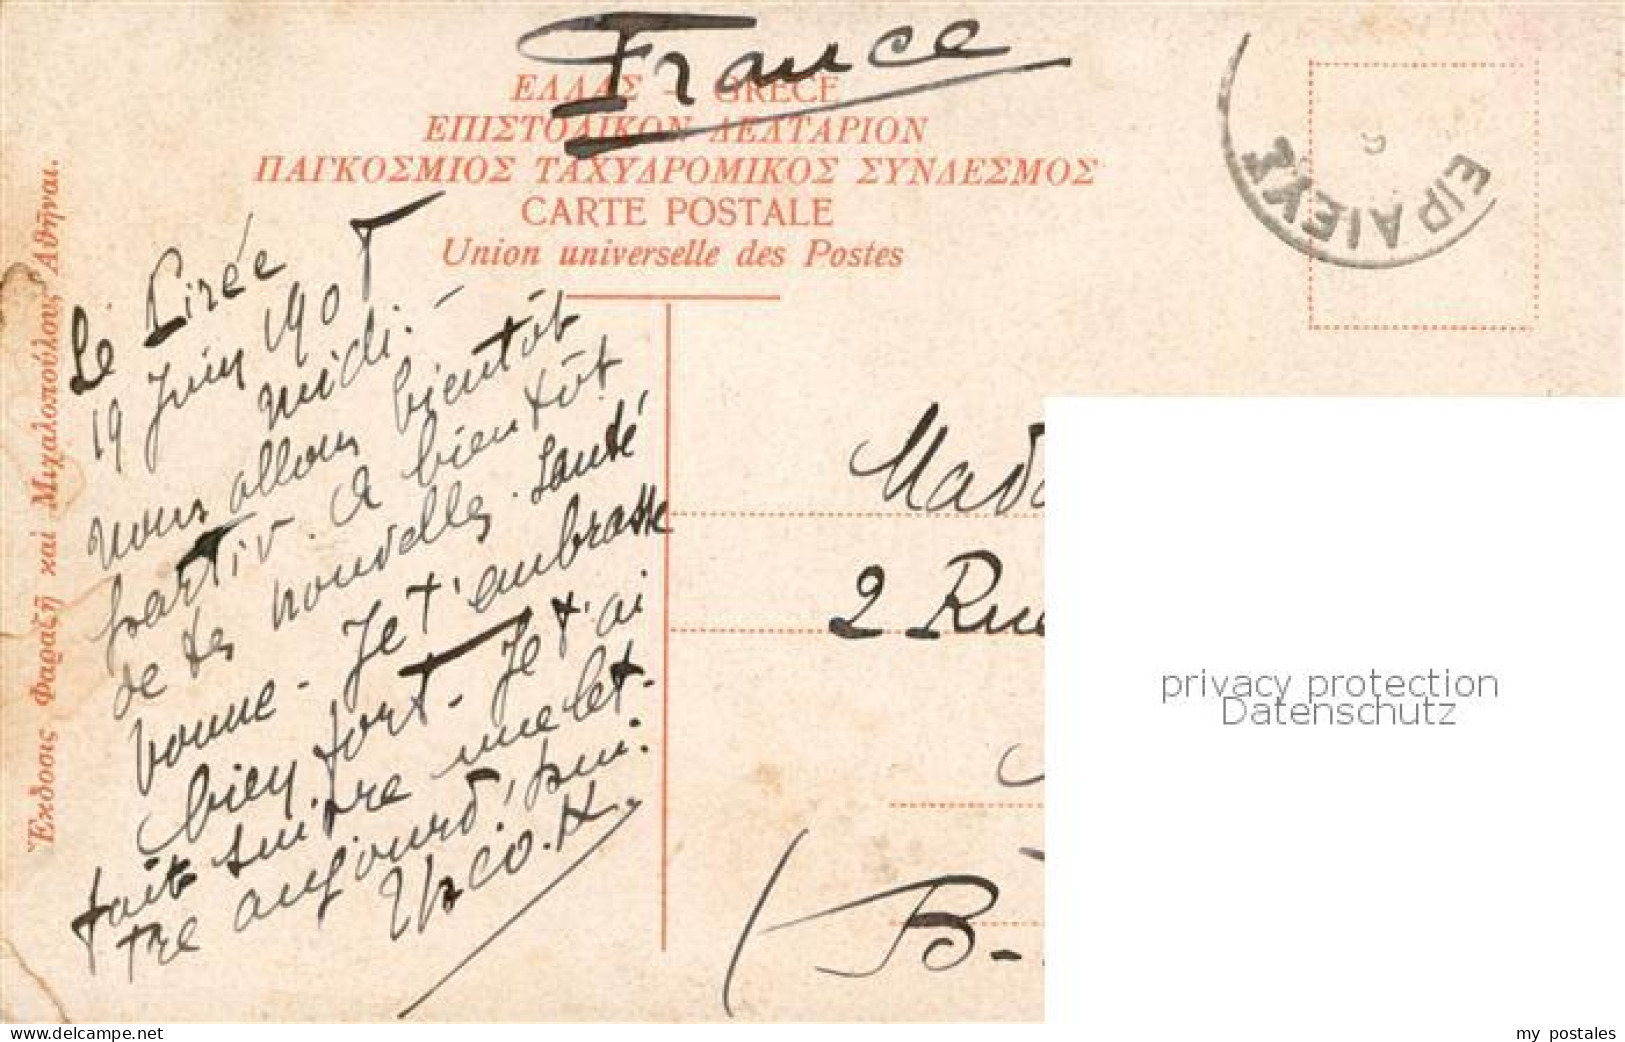 France
ΕΛΛΑΣ - GRÈCE
ΕΠΙΣΤΟΛΙΚΟΝ ΔΕΛΤΑΡΙΟΝ
ΠΑΓΚΟΣΜΙΟΣ ΤΑΧΥΔΡΟΜΙΚΟΣ ΣΥΝΔΕΣΜΟΣ
CARTE POSTALE
Union universelle des Postes
ΠΕΙΡΑΙΕΥΣ
Ἔκδοσις Φαραζῆ καὶ Μιχαλοπούλου, Ἀθῆναι.
Le Pirée
19 Juin 190
midi. -
Nous allons bientôt
partir. A bientôt
de tes nouvelles. Santé
bonne - Je t'embrasse
bien fort - Je t'ai
fait suivre une let-
tre aujourd'hui.
Mad
2 Rue
(B-
privacy protection
Datenschutz
www.delcampe.net
my_postales